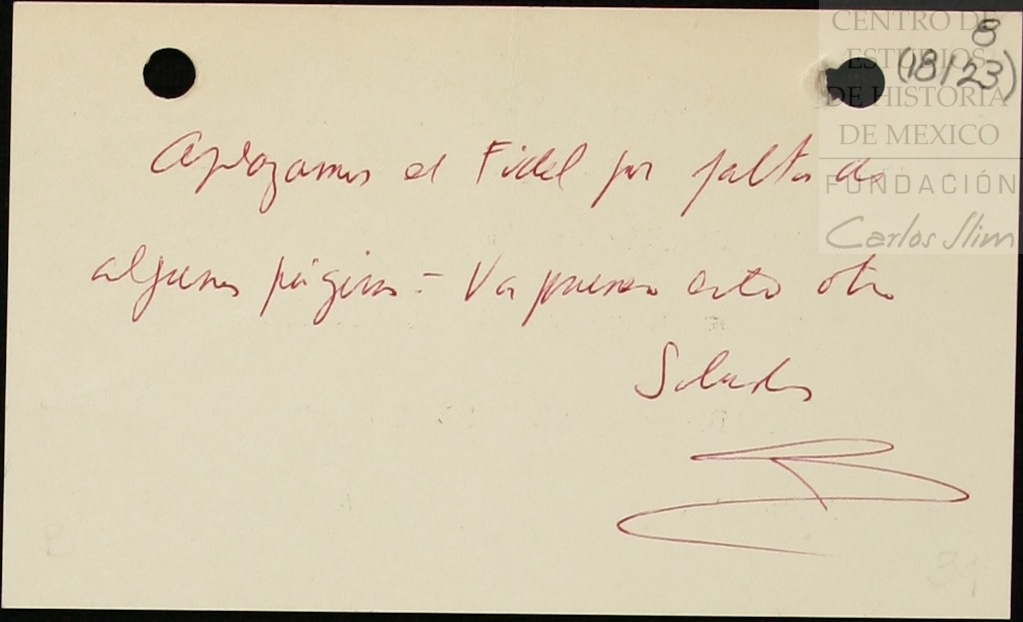 CENTRO DE
ESTUDIOS
DE HISTORIA
DE MEXICO
FUNDACIÓN
Carlos Slim
8
(18/23)
Aplazamos el Fidel por falta de
algunas páginas - Va primero este otro
Saludos